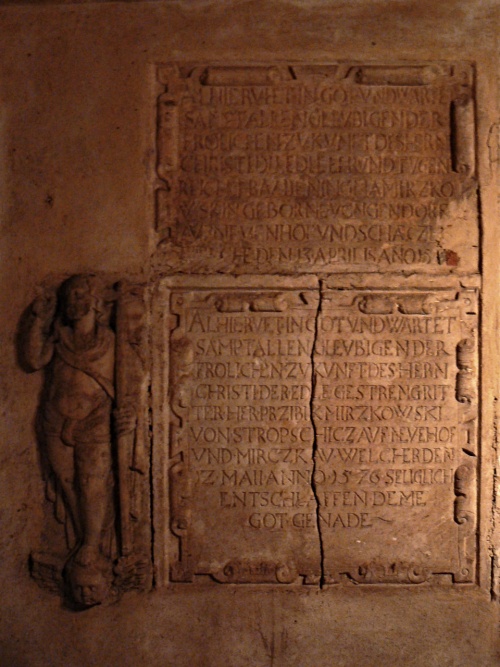 ALHIE RVE PIN GOT VND WARTE
SAMPT ALLEN GLEVBIGEN DER
FROLICHEN ZVKVNFT DES HERN
CHRISTI DIE EDLE EHR VND TVGEN
REICHE FRAV
MIRZKO
GEBORNE
NEVENHOF VND
DEN 13 APRILIS ANO 15
ALHIE RVE PIN GOT VND WARTET
SAMPT ALLEN GLEVBIGEN DER
FROLICHEN ZVKVNFT DES HERN
CHRISTI DER EDLE GESTRENG RIT
TER HER PRZIBIK MIRZKOWSKI
VON STROPSCHICZ AVF NEVEHOF
VND MIRCZKAV WELCHER DEN
MAII ANNO 1576 SELIGLICH
ENTSCHLAFFEN DEME
GOT GENADE